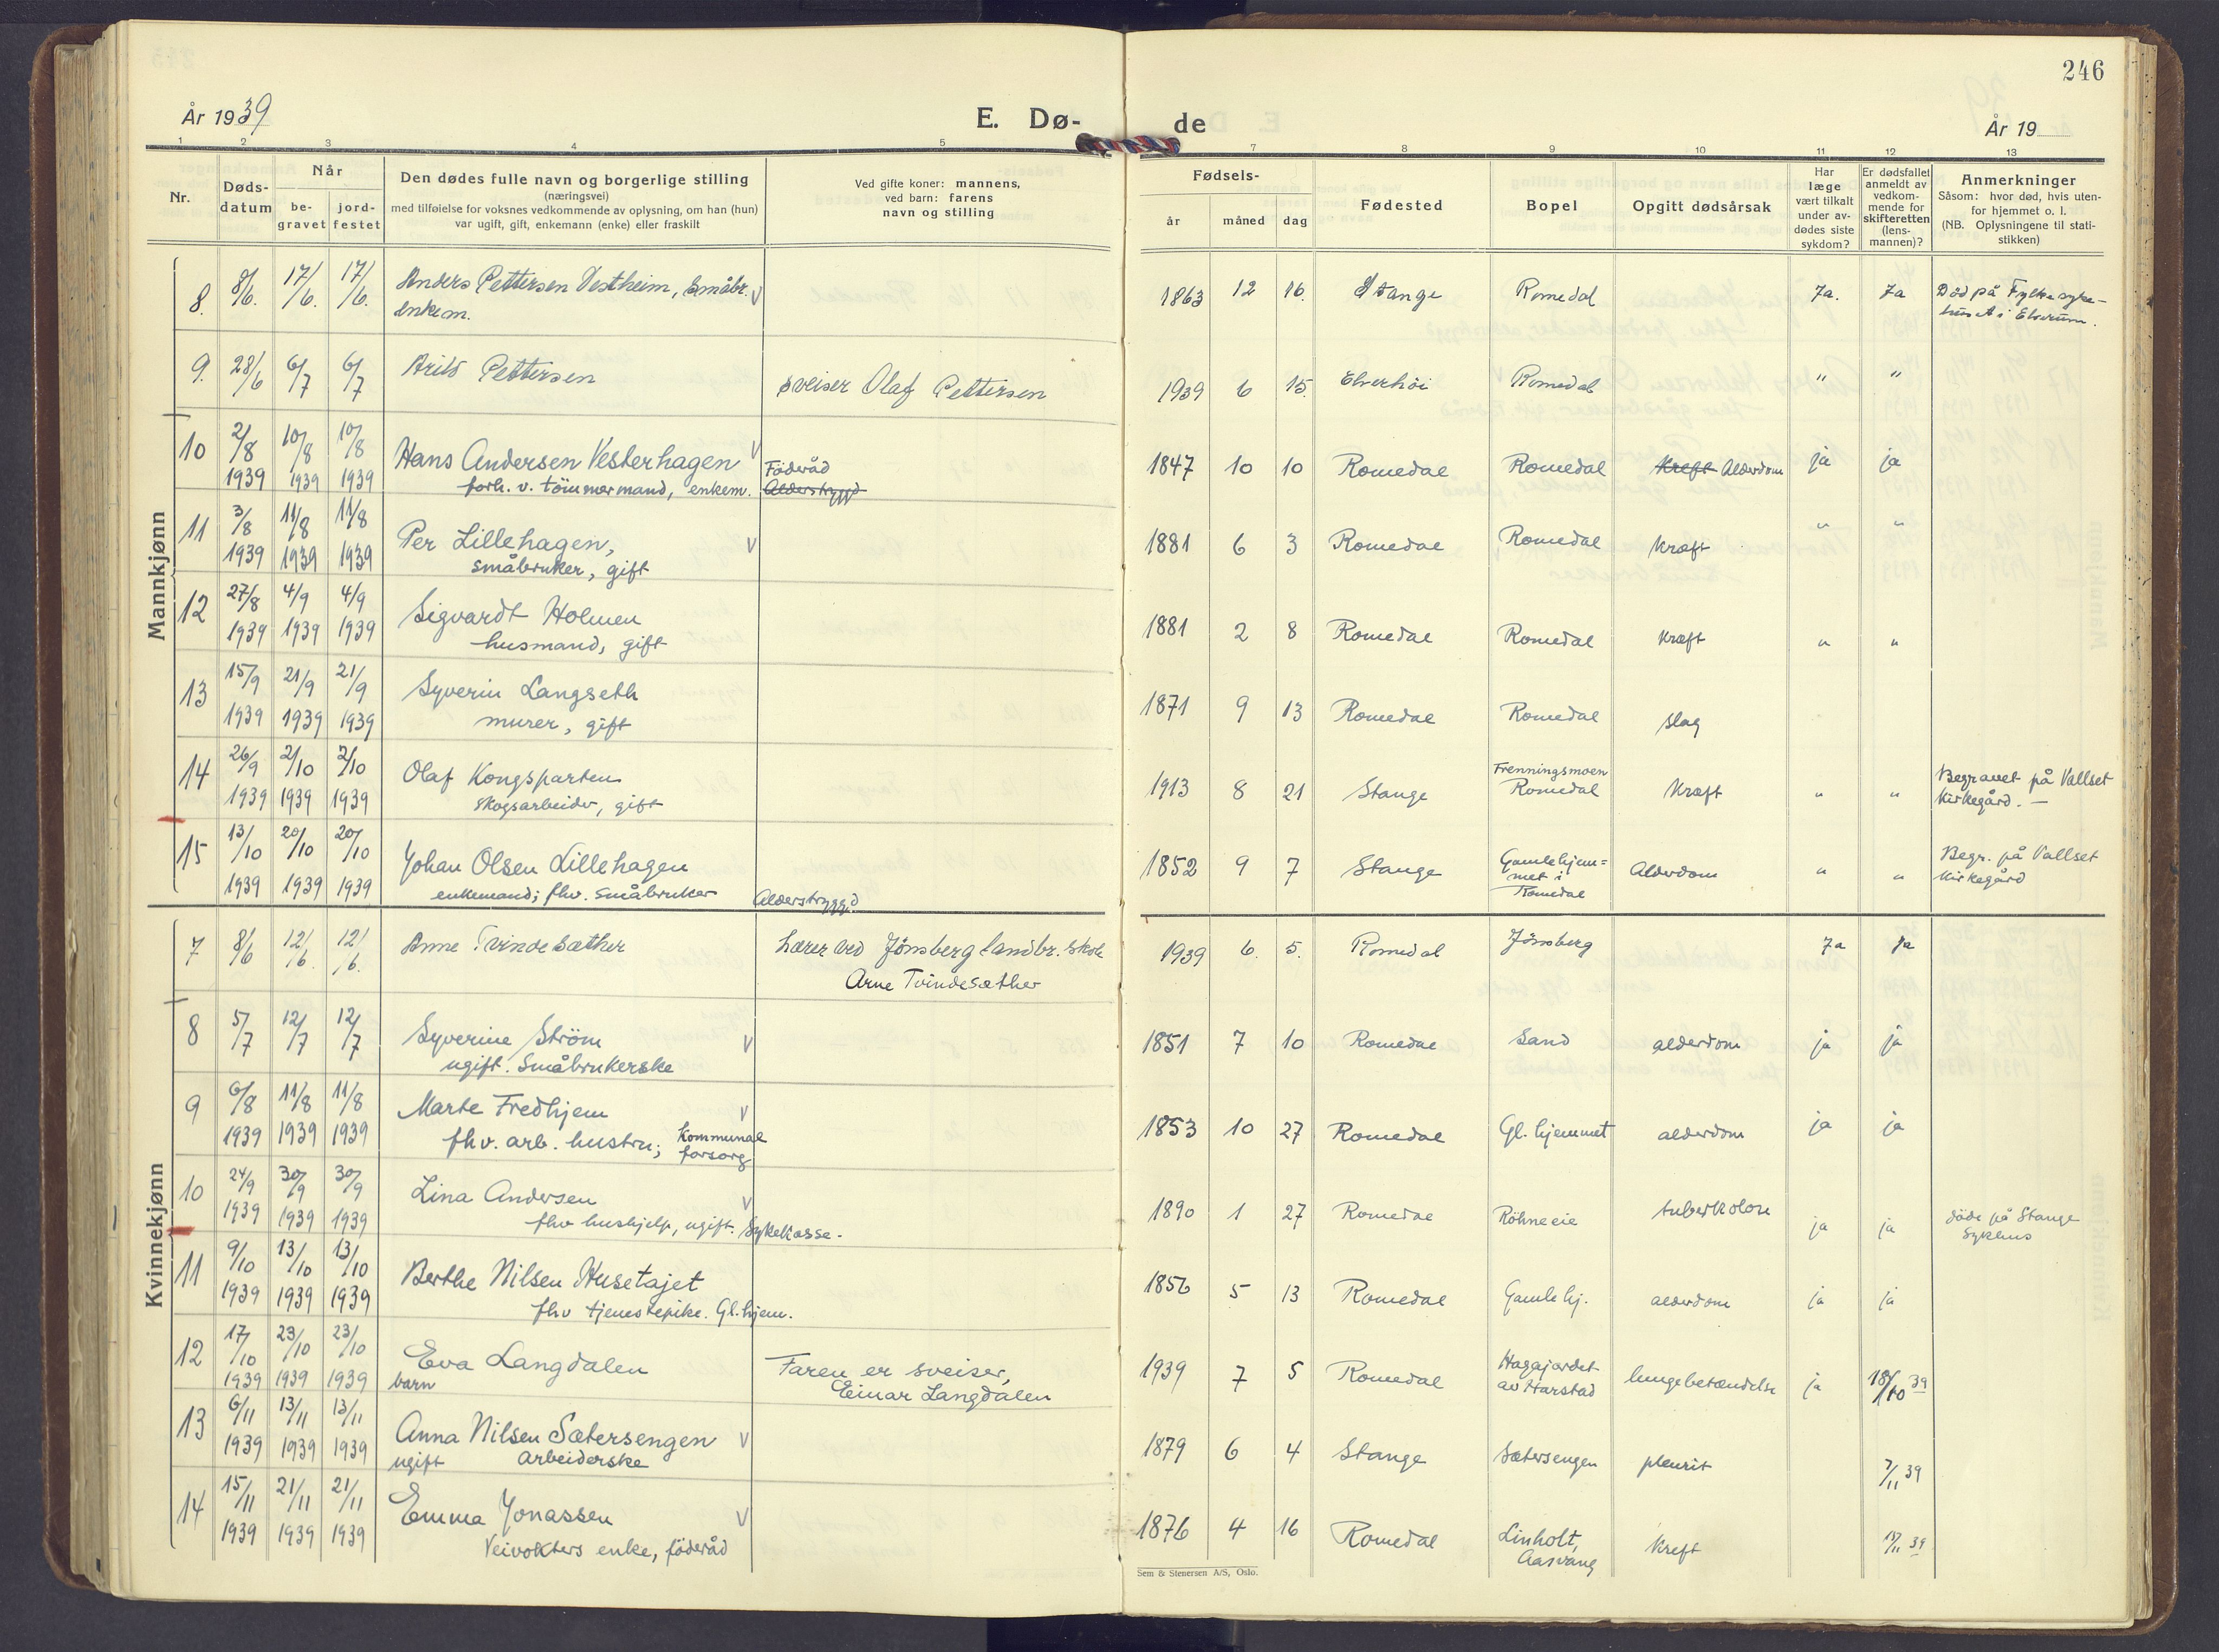 246
År 1939
E. Dø-
de
År 19
1 2 3 4 5 7 8 9 10 11 12 13
Nr.
Døds-
datum
Når
be-
gravet
jord-
festet
Den dødes fulle navn og borgerlige stilling
(næringsvei)
med tilføielse for voksnes vedkommende av oplysning, om han (hun)
var ugift, gift, enkemann (enke) eller fraskilt
Ved gifte koner: mannens,
ved barn: farens
navn og stilling
Fødsels-
år måned dag
Fødested
Bopel
Opgitt dødsårsak
Har
læge
vært tilkalt
under av-
dødes siste
sykdom?
Er dødsfallet
anmeldt av
vedkom-
mende for
skifteretten
(lens-
mannen)?
Anmerkninger
Såsom: hvor død, hvis uten-
for hjemmet o. l.
(NB. Oplysningene til stati-
stikken)
Mannkjønn
8. 8/6. 17/6. 17/6. Anders Pettersen Vestheim, småbr. V
enkem.
1863 12 16. Stange Romedal Ja. Ja Död på Fylkesyke-
huset i Elverum.
9. 28/6 6/7 6/7 Arild Pettersen sveiser Olaf Pettersen 1939 6 15. Elverhöi Romedal " "
10 2/8 1939 10/8 1939 10/8 1939 Hans Andersen Vesterhagen V
forh. v. tömmermand, enkem.
Föderåd
Alderstrygd
1847 10 10 Romedal Romedal Kreft Alderdom ja ja
11 3/8 1939 11/8 1939 11/8 1939 Per Lillehagen, V
småbruker, gift
1881 6 3 Romedal Romedal Kræft " "
12 27/8 1939 4/9 1939 4/9 1939 Sigvardt Holmen
husmand, gift
1881 2 8 Romedal Romedal Kræft " "
13 15/9 1939 21/9 1939 21/9 1939 Syverin Langseth
murer, gift
1871 9 13 Romedal Romedal slag
14 26/9 1939 2/10 1939 2/10 1939 Olaf Kongsparten
skogsarbeider, gift
1913 8 21 Stange Frenningsmoen
Romedal Kræft " " Begravet på Vallset
Kirkegård. —
15 13/10 1939 20/10 1939 20/10 1939 Johan Olsen Lillehagen
enkemand; fhv. småbruker Alderstrygd
1852 9 7 Stange Gamlehjem=
met i
Romedal Alderdom " " Begr. på Vallset
Kirkegård
Kvinnekjønn
7 8/6 12/6. 12/6. Anne Tvindesæther Lærer ved Jönsberg landbr. skole
Arne Tvindesæther
1939 6. 5. Romedal Jönsberg Ja Ja
8 5/7 12/7 12/7 Syverine Ström V
ugift. Småbrukerske
1851 7 10 Romedal Sand alderdom ja ja
9 6/8 1939 11/8 1939 11/8 1939 Marte Fredhjem V
fhv. arb. hustru; Kommunal
forsorg
1853 10 27 Romedal Gl. hjemmet alderdom ja ja
10 24/9 1939 30/9 1939 30/9 1939 Lina Andersen V
fhv hushjelp, ugift. Sykekasse.
1890 1 27 Romedal Röhneeie tuberkolose ja ja döde på Stange
Sykehus
11 9/10 1939 13/10 1939 13/10 1939 Berthe Nilsen Husetajet
fhv tjenestepike. Gl. hjem.
1856 5 13 Romedal Gamlehj. alderdom ja ja
12 17/10 1939 23/10 1939 23/10 1939 Eva Langdalen
barn
Faren er sveiser,
Einar Langdalen
1939 7 5 Romedal Hagajordet
av Harstad lungebetændelse ja 18/10 39
13 6/11 1939 13/11 1939 13/11 1939 Anna Nilsen Sætersengen V
ugift Arbeiderske
1879 6 4 Stange Sætersengen pleurit 7/11 39
14 15/11 1939 21/11 1939 21/11 1939 Emma Jonassen V
Veivokters enke, föderåd
1876 4 16 Romedal Linholt,
Aasvang Kreft 17/11 39
Sem & Stenersen A/S, Oslo.